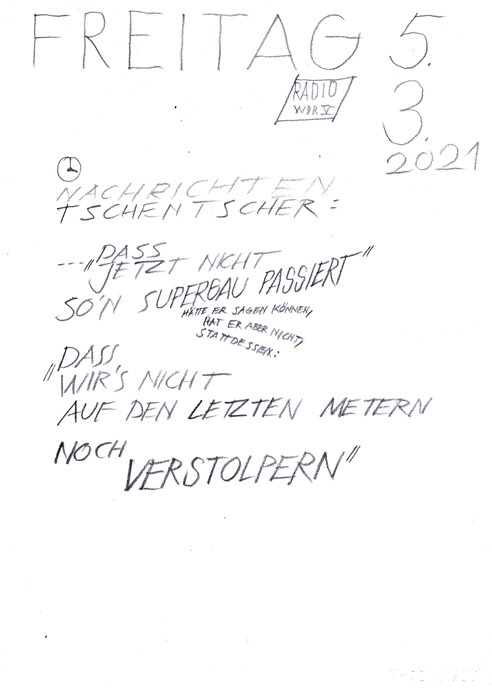 FREITAG 5.
3.
2021
RADIO
WDR V
NACHRICHTEN
TSCHENTSCHER:
---„DASS
JETZT NICHT
SO'N SUPERGAU PASSIERT"
HÄTTE ER SAGEN KÖNNEN,
HAT ER ABER NICHT,
STATTDESSEN:
„DASS
WIR'S NICHT
AUF DEN LETZTEN METERN
NOCH
VERSTOLPERN"